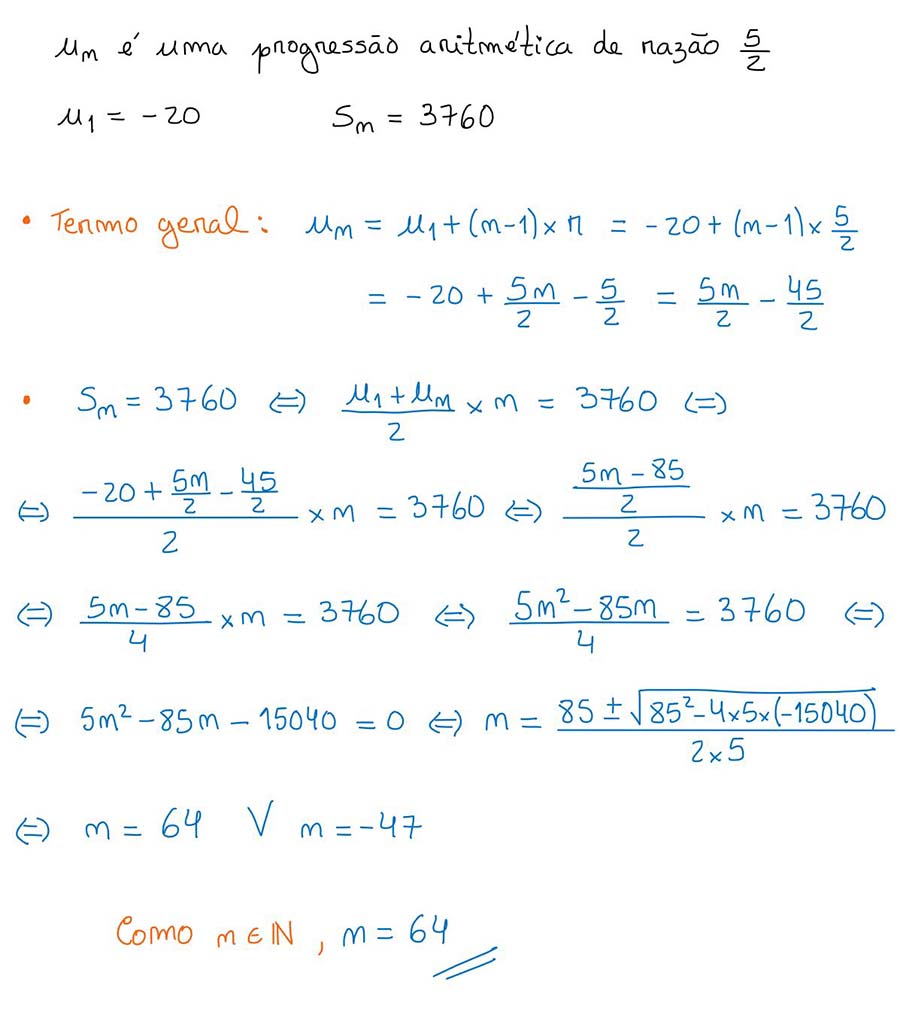 uₙ é uma progressão aritmética de razão 5/2
u₁ = -20 Sₙ = 3760
• Termo geral: uₙ = u₁ + (n-1) × r = -20 + (n-1) × 5/2
= -20 + 5n/2 - 5/2 = 5n/2 - 45/2
• Sₙ = 3760 ⇔ (u₁ + uₙ)/2 × n = 3760 ⇔
⇔ (-20 + 5n/2 - 45/2)/2 × n = 3760 ⇔ ((5n - 85)/2)/2 × n = 3760
⇔ (5n - 85)/4 × n = 3760 ⇔ (5n² - 85n)/4 = 3760 ⇔
⇔ 5n² - 85n - 15040 = 0 ⇔ n = (85 ± √(85² - 4×5×(-15040)))/(2×5)
⇔ n = 64 ∨ n = -47
Como n ∈ ℕ, n = 64